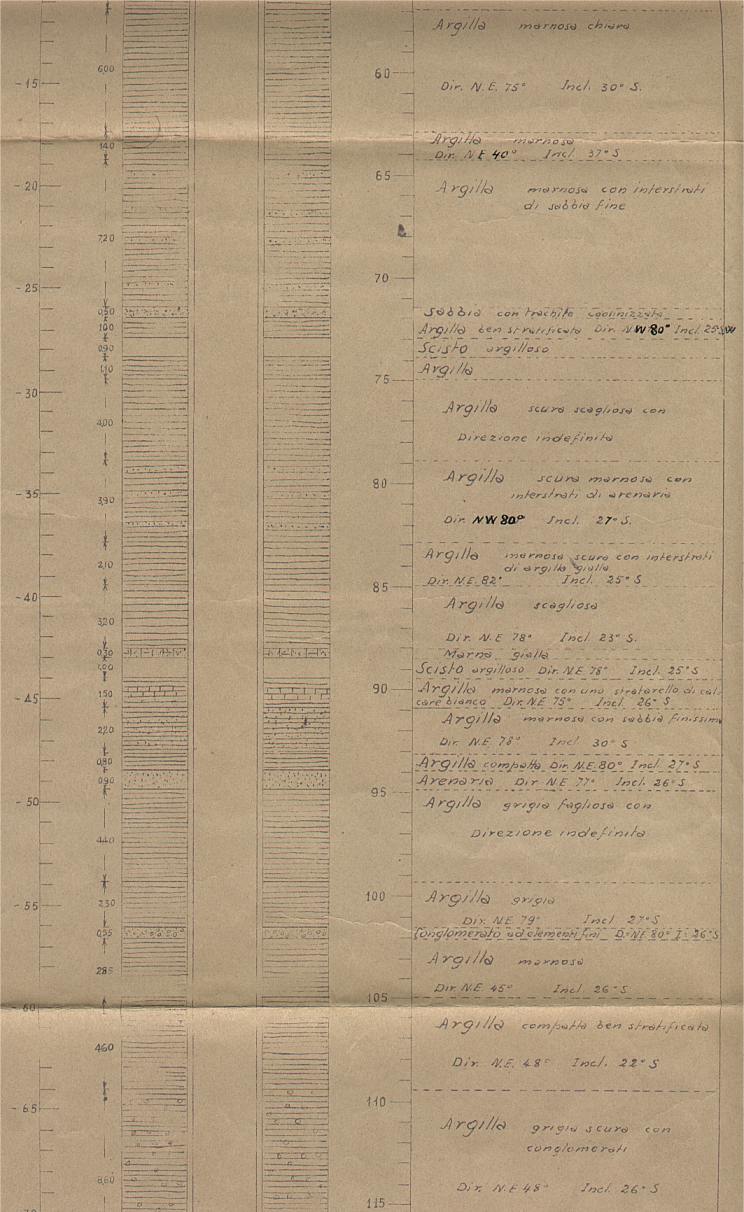 Argilla marnosa chiara
60
-15
6,00
Dir. N.E. 75° Incl. 30° S.
Argilla marnosa
1,40
Dir. N E 40° Incl. 37° S
65
-20
Argilla marnosa con interstrati
di sabbia fine
7,20
70
-25
0,50
Sabbia con trachite caolinizzata
1,00
Argilla ben stratificata Dir. NW 80° Incl. 25°
0,90
Scisto argilloso
1,10
Argilla
75
-30
Argilla scura scagliosa con
4,00
Direzione indefinita
80
Argilla scura marnosa con
-35
3,90
interstrati di arenaria
Dir. NW 80° Incl. 27° S.
2,10
Argilla marnosa scura con interstrati
di argilla gialla
Dir. N.E. 82° Incl. 25° S
85
-40
Argilla scagliosa
3,20
Dir. N.E 78° Incl. 23° S.
0,30
Marna gialla
1,00
Scisto argilloso Dir. NE 78° Incl. 25° S
90
-45
1,50
Argilla marnosa con uno straterello di cal
care bianco Dir. NE 75° Incl. 26° S
2,20
Argilla marnosa con sabbia finissima
Dir. N.E 78° Incl 30° S
0,80
Argilla compatta Dir. N.E. 80° Incl. 27° S
0,90
Arenaria Dir NE 77° Incl. 26° S
95
-50
Argilla grigia fagliosa con
4,40
Direzione indefinita
100
-55
2,30
Argilla grigia
Dir. N.E 79° Incl 27° S
0,55
Conglomerato ad elementi fini D. NE 80° I. 26° S
2,85
Argilla marnosa
Dir N.E 45° Incl. 26° S
105
-60
4,60
Argilla compatta ben stratificata
Dir. N.E. 48° Incl. 22° S
110
-65
Argilla grigia scura con
conglomerati
8,60
Dir. N.E 48° Incl. 26° S
115